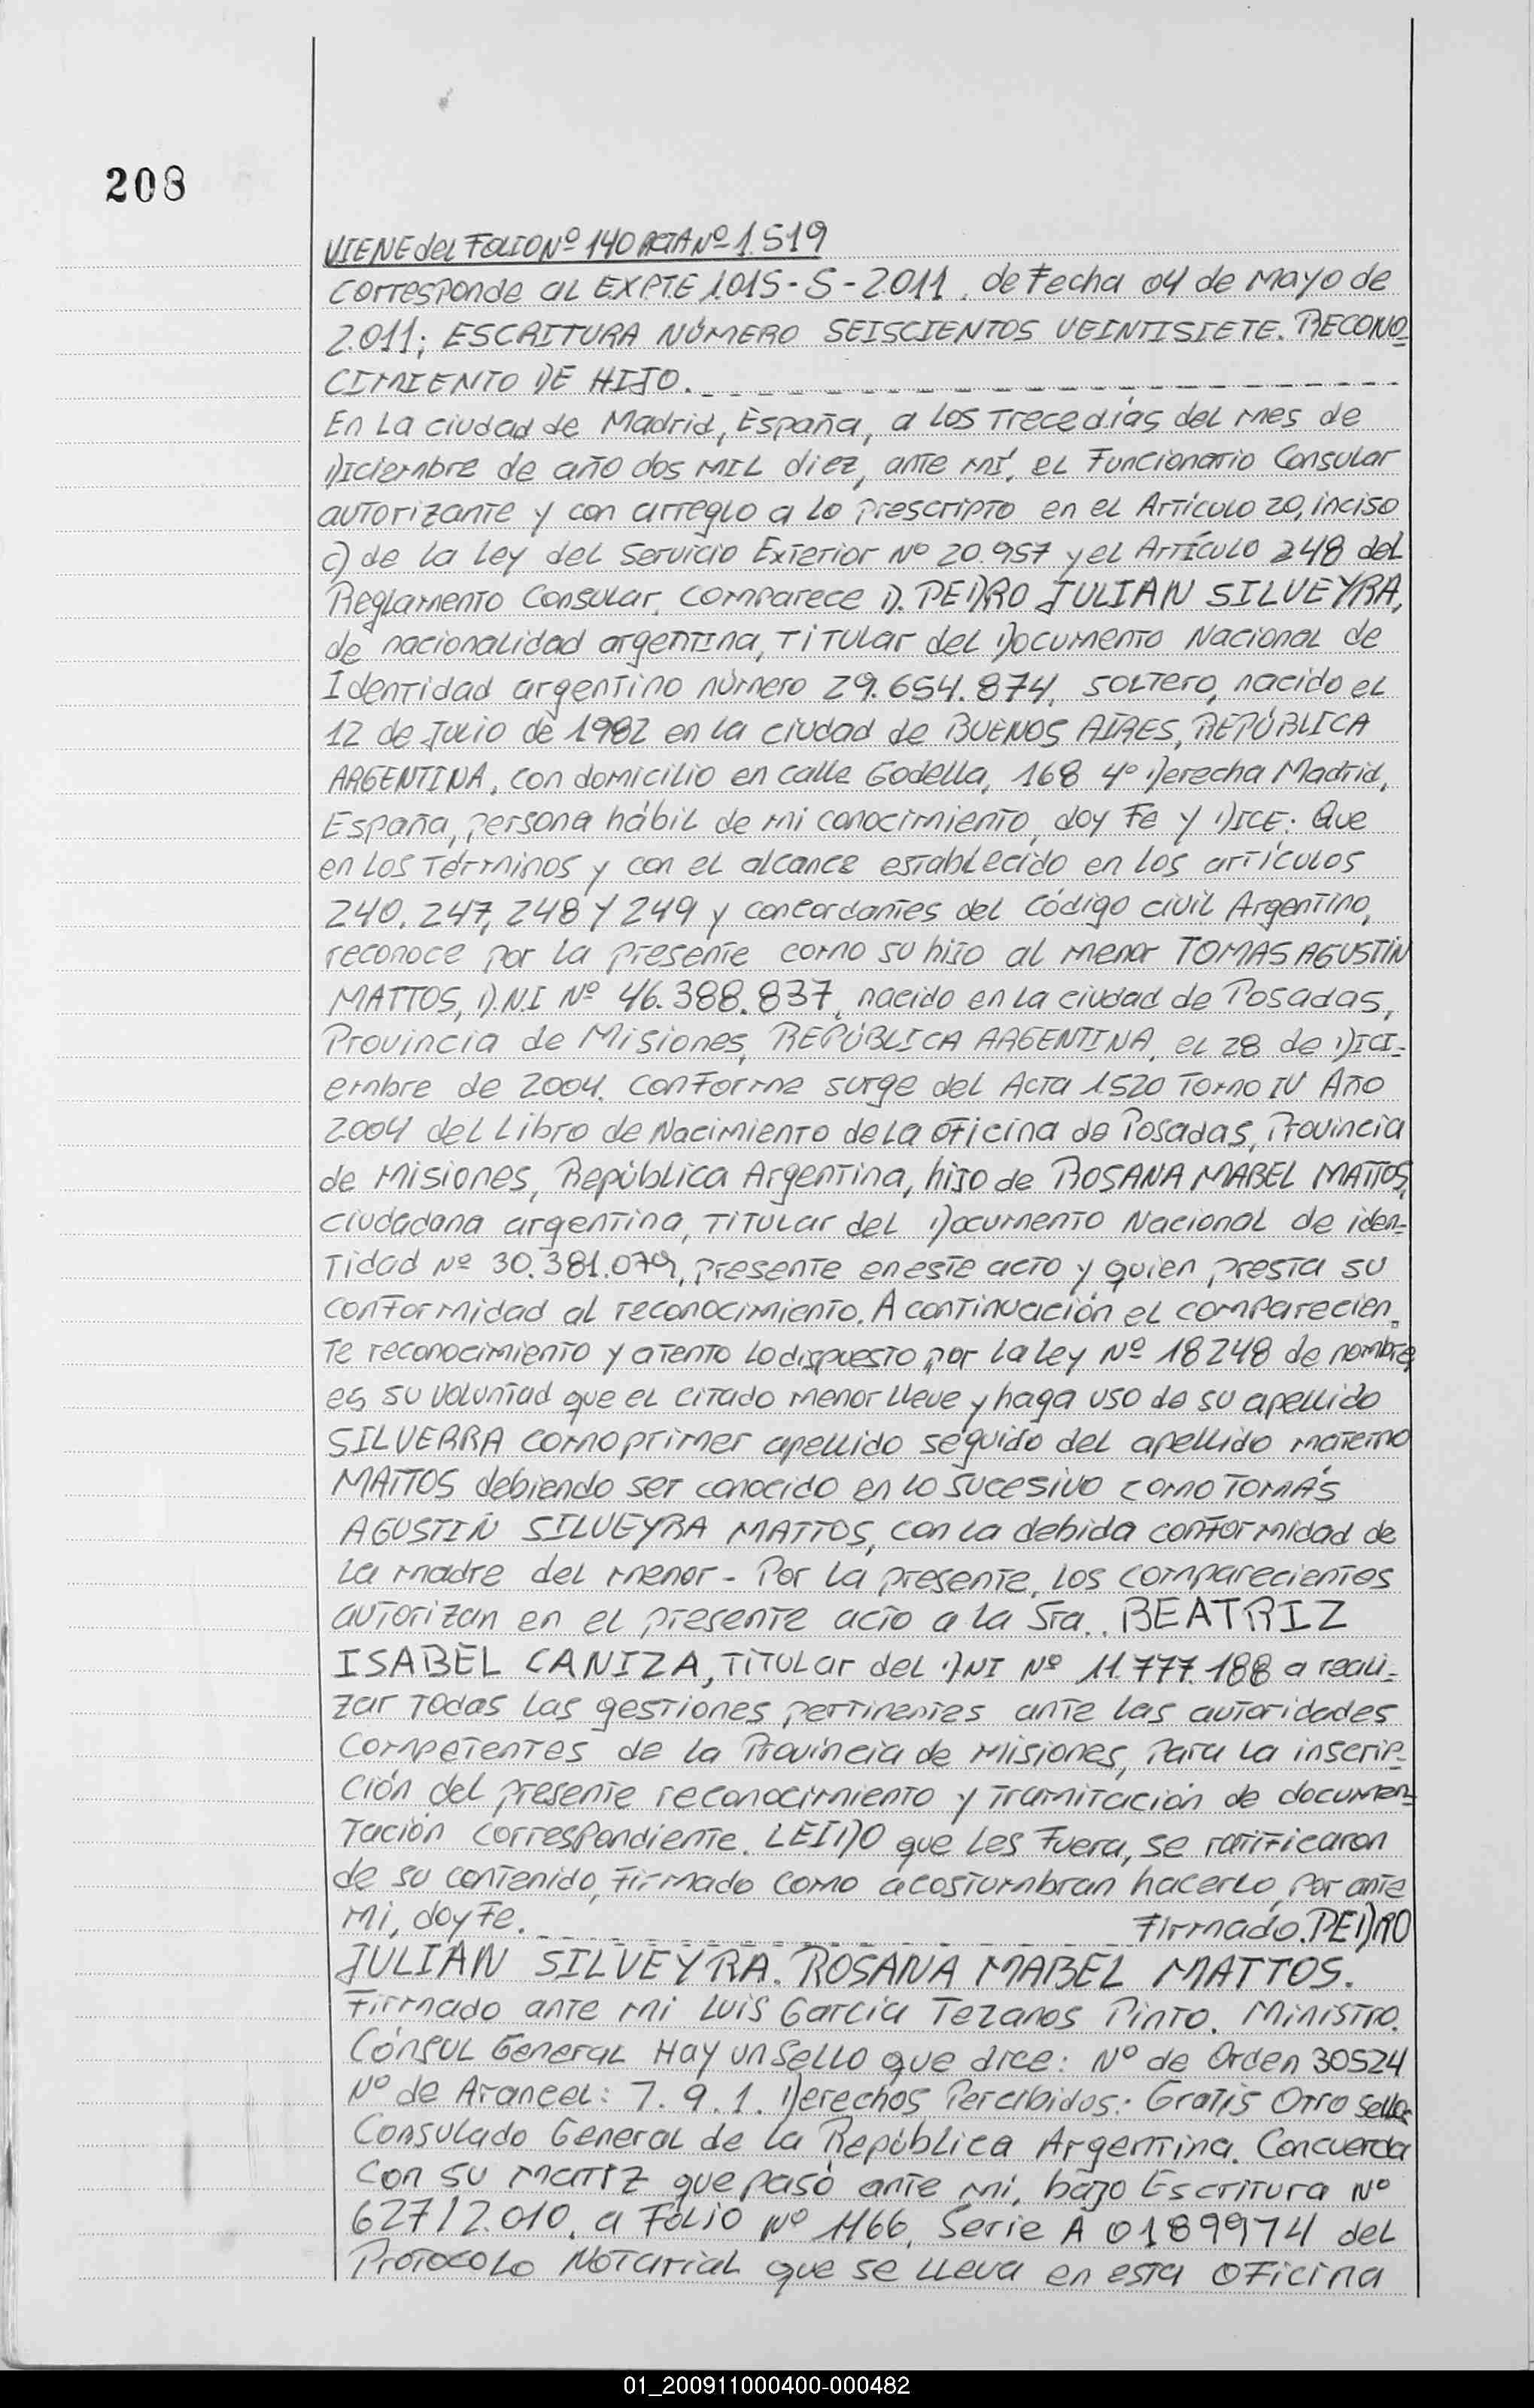 208
VIENE del FOLIO Nº 140 ACTA Nº 1.519
Corresponde al EXPTE 1.015-S-2.011. de Fecha 04 de Mayo de
2.011; ESCRITURA NÚMERO SEISCIENTOS VEINTISIETE. RECONO
CIMIENTO DE HIJO.
En la ciudad de Madrid, España, a los Trece días del mes de
Diciembre de año dos MIL diez, ante mí, el Funcionario Consular
autorizante y con arreglo a lo prescripto en el Artículo 20, inciso
c) de la Ley del Servicio Exterior Nº 20.957 y el Artículo 248 del
Reglamento Consular, comparece D. PEDRO JULIAN SILVEYRA,
de nacionalidad argentina, Titular del Documento Nacional de
Identidad argentino número 29.654.874, soltero, nacido el
12 de Julio de 1982 en la ciudad de BUENOS AIRES, REPÚBLICA
ARGENTINA, con domicilio en calle Godella, 168 4º Derecha Madrid,
España, persona hábil de mi conocimiento, doy Fe y DICE: Que
en los Términos y con el alcance establecido en los artículos
240, 247, 248 Y 249 y concordantes del Código civil Argentino,
reconoce por la presente como su hijo al menor TOMAS AGUSTIN
MATTOS, D.N.I Nº 46.388.837, nacido en la ciudad de Posadas,
Provincia de Misiones, REPÚBLICA ARGENTINA, el 28 de Dici-
embre de 2004. conforme surge del Acta 1520 Tomo IV Año
2004 del Libro de Nacimiento de la Oficina de Posadas, Provincia
de Misiones, República Argentina, hijo de ROSANA MABEL MATTOS,
ciudadana argentina, Titular del Documento Nacional de iden-
tidad Nº 30.381.079, presente en este acto y quien presta su
conformidad al reconocimiento. A continuación el comparecien-
te reconocimiento y atento lo dispuesto por la ley Nº 18248 de nombre,
es su voluntad que el citado menor lleve y haga uso de su apellido
SILVERRA como primer apellido seguido del apellido materno
MATTOS debiendo ser conocido en lo sucesivo como TOMÁS
AGUSTIN SILVEYRA MATTOS, con la debida conformidad de
la madre del menor - Por la presente, los comparecientes
autorizan en el presente acto a la Sra.. BEATRIZ
ISABEL CANIZA, Titular del DNI Nº 11.777.188 a reali-
zar todas las gestiones pertinentes ante las autoridades
competentes de la Provincia de Misiones, para la inscrip-
ción del presente reconocimiento y tramitación de documen-
tación correspondiente. LEIDO que les fuera, se ratificaron
de su contenido, firmado como acostumbran hacerlo, por ante
mi, doy Fe. Firmado. PEDRO
JULIÁN SILVEYRA. ROSANA MABEL MATTOS.
Firmado ante mi Luis García Tezanos Pinto. Ministro.
Cónsul General Hay un sello que dice: Nº de Orden 30524
Nº de Arancel: 7. 9. 1. Derechos Percibidos: Gratis Otro sello:
Consulado General de la República Argentina. Concuerda
con su matriz que pasó ante mi, bajo Escritura Nº
627/2.010, a Folio Nº 1166, Serie A 0189974 del
Protocolo Notarial que se lleva en esta Oficina
01_200911000400-000482